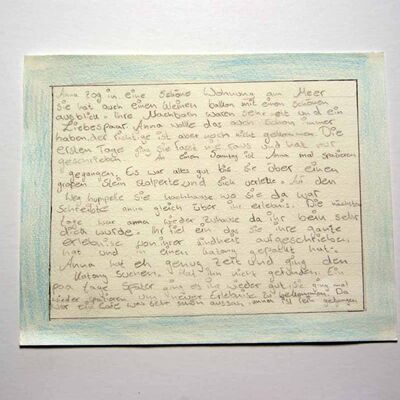 Anna zog in eine schöne Wohnung am Meer
sie hat auch einen kleinen balkon mit einen schönen
ausblick. Ihre Nachbarn waren sehr nett und ein
Liebespaar. Anna wollte das auch schon immer
haben, der richtige ist aber noch nicht gekommen. Die
ersten Tage ging sie fast nie raus und hat nur
geschrieben. An einen Sonntag ist Anna mal spatieren
gegangen. Es war alles gut bis sie über einen
großen Stein stolperte und sich verletzte. Auf den
Weg humpelte sie nachhause wo sie da war
schreibte anna gleich über ihr erlebnis. Die nächsten
tage war anna wieder zuhause da ihr bein sehr
dick wurde. Ihr fiel ein das sie ihre ganze
erlebnise von ihrer kindheit aufgeschrieben
hat und in einen katong gepackt hat.
Anna hat eh genug zeit und ging den
katong suchen. Hat ihn nicht gefunden. Ein
paar tage später ging es ihr wieder gut, sie ging mal
wieder spatieren um neuer Erlebnise zu bekommen. Da
war ein Ende was sehr schön aussah, immer ist gegangen